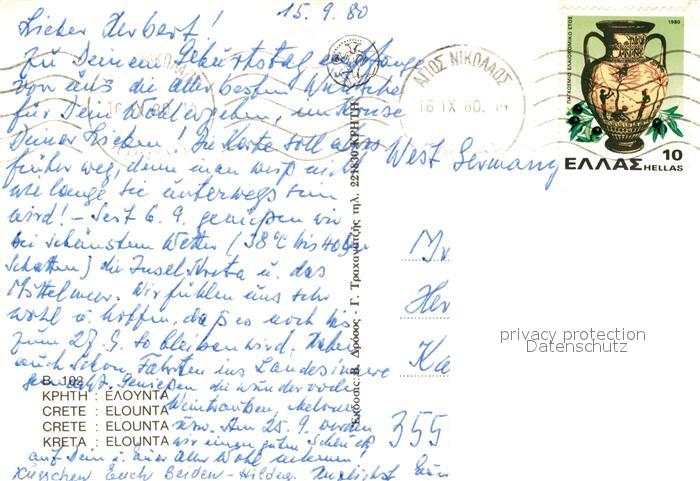 15.9.80
Lieber Herbert!
Zu Deinem Geburtstag empfange
von uns die allerbesten Wünsche
für Dein Wohlergehen, im Kreise
Deiner Lieben! Die Karte soll etwas
früher weg, denn man weiß nie,
wie lange sie unterwegs sein
wird! – Seit 6.9. genießen wir
bei schönstem Wetter (38°C bis 40 im
Schatten) die Insel Kreta u. das
Mittelmeer. Wir fühlen uns sehr
wohl u. hoffen, daß es noch bis
zum 27.9. so bleiben wird. Haben
auch schon Fahrten ins Landesinnere
gemacht. Genießen die wundervollen
Weintrauben, Melonen
usw. Am 25.9. werden
wir einen guten Schluck
auf Dein u. Euer aller Wohl nehmen
Küsschen Euch Beiden - Hildes. Herzlichst
B. 102
ΚΡΗΤΗ : ΕΛΟΥΝΤΑ
CRETE : ELOUNTA
CRETE : ELOUNTA
KRETA : ELOUNTA
Εκδοσις: Β. Δρόσος - Γ. Τραχανατζής τηλ. 221830 ΚΡΗΤΗ
ΑΓΙΟΣ ΝΙΚΟΛΑΟΣ
16 IX 80. 14
ΠΑΓΚΟΣΜΙΟ ΕΛΑΙΟΚΟΜΙΚΟ ΕΤΟΣ
1980
10
ΕΛΛΑΣ HELLAS
West Germany
Her
Ka
355
privacy protection
Datenschutz